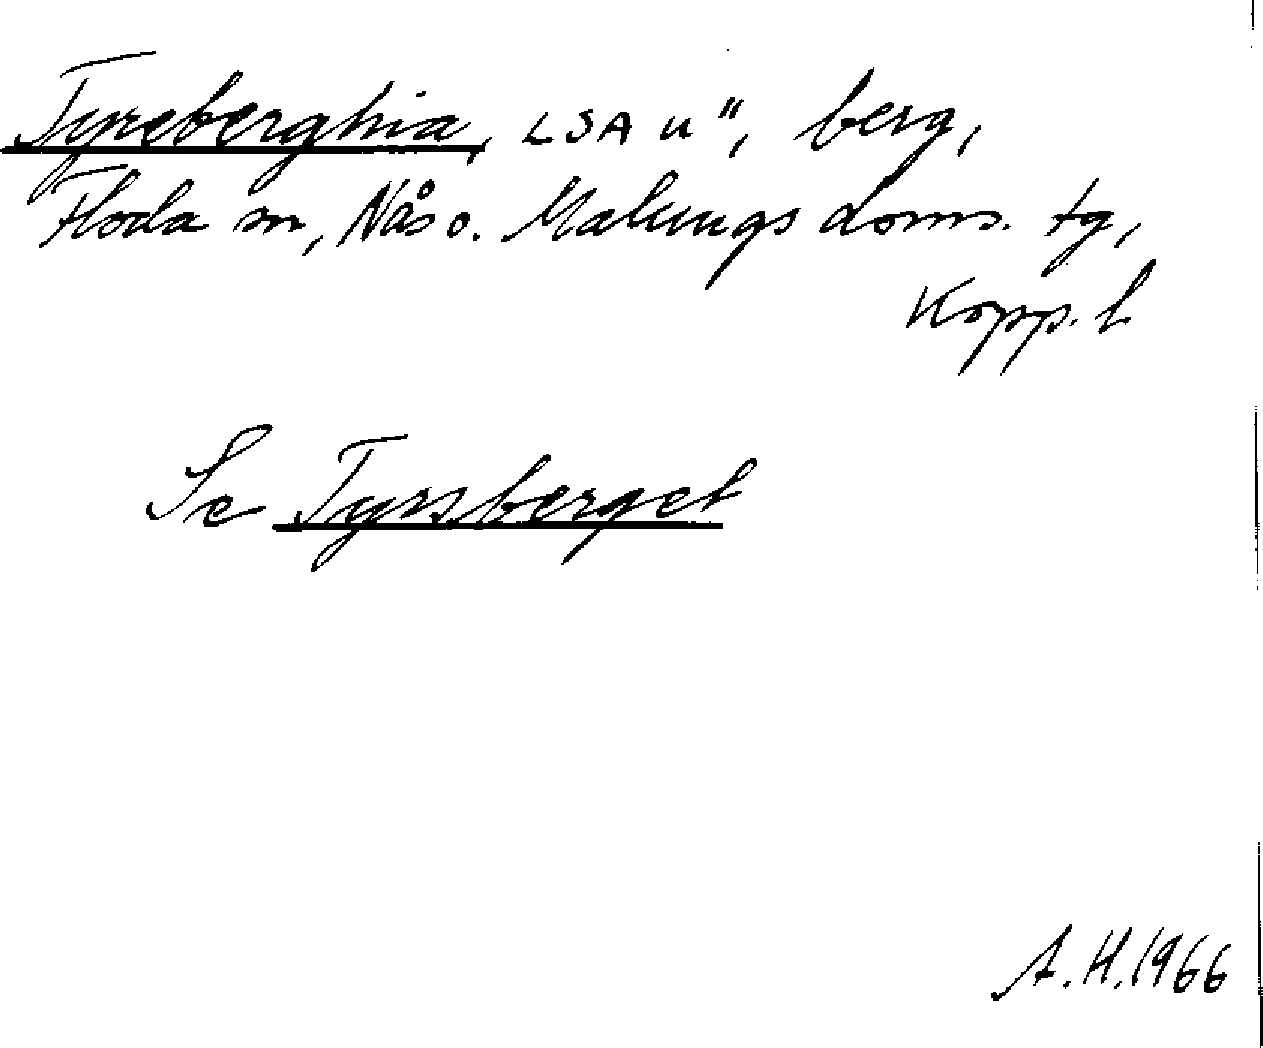 Tyreberghia, LSA u", berg,
Floda sn, Nås o. Malungs doms. tg,
Kopp. l
Se Tyrsberget
A.H. 1966